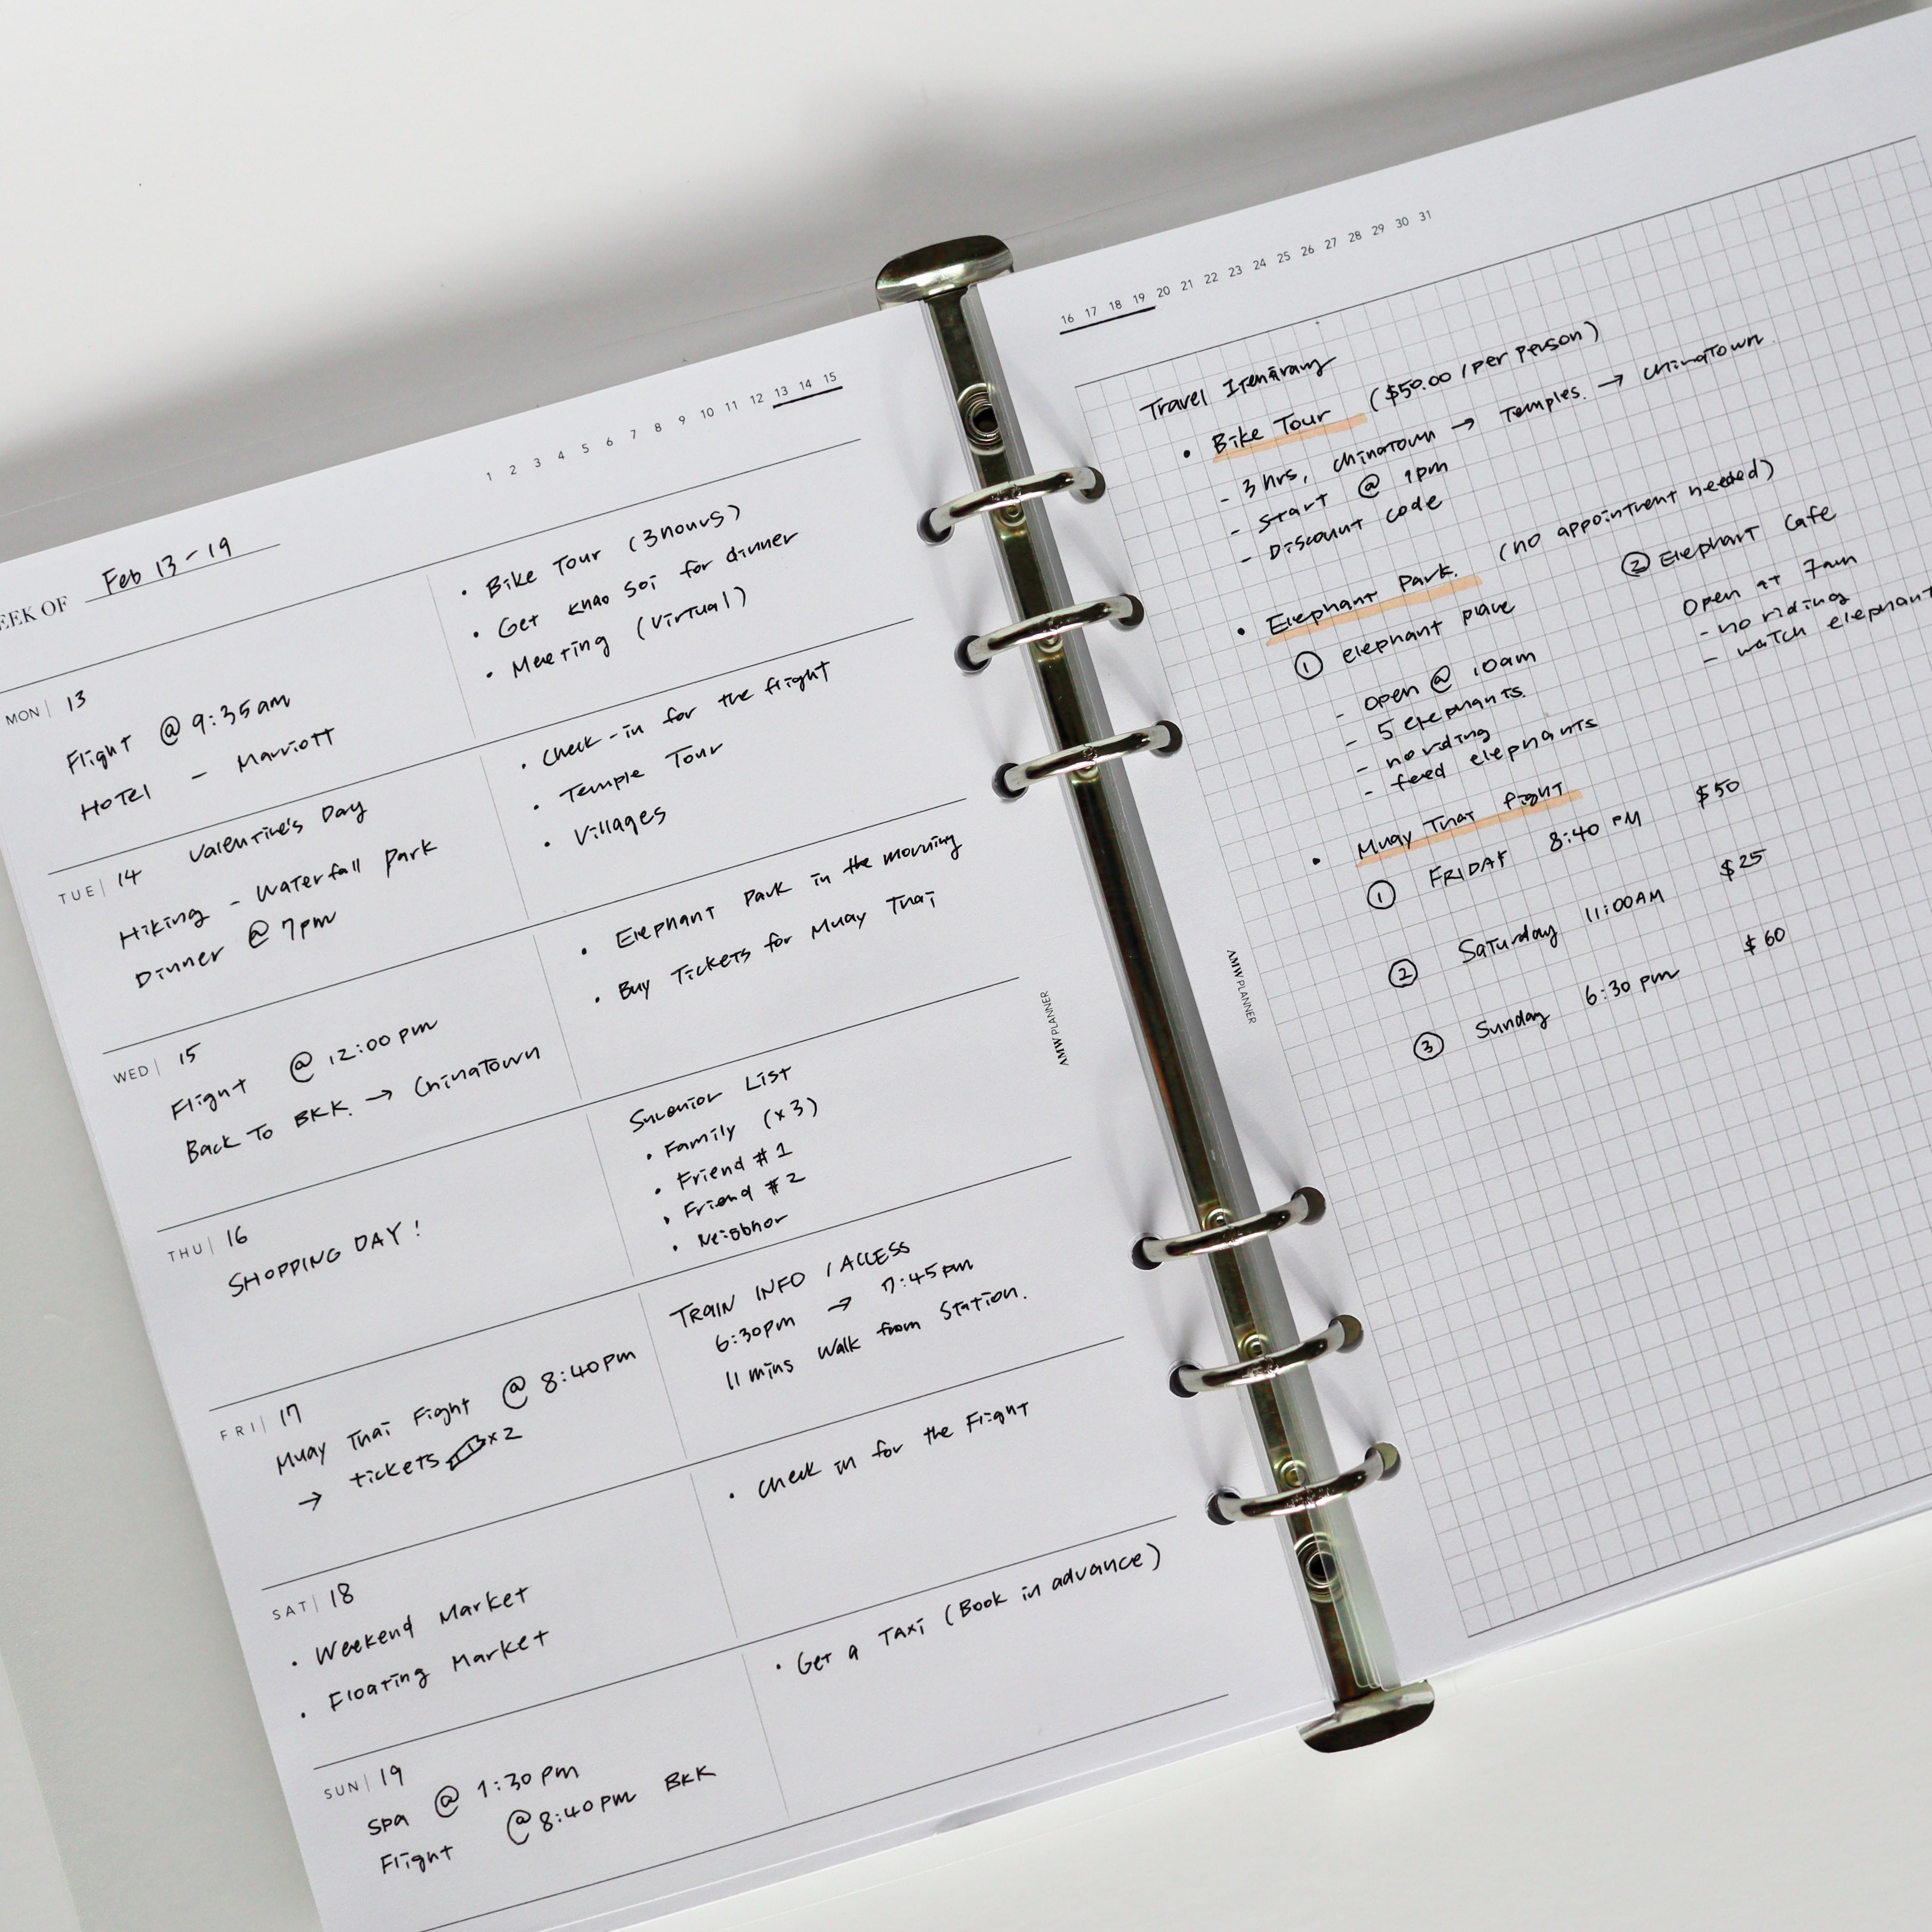 EEK OF Feb 13-19
1 2 3 4 5 6 7 8 9 10 11 12 13 14 15
MON | 13
Flight @ 9:35am
HOTEL - Marriott
• Bike Tour (3hours)
• Get Khao Soi for dinner
• Meeting (Virtual)
TUE | 14 Valentine's Day
Hiking - Waterfall Park
Dinner @ 7pm
• Check-in for the flight
• Temple Tour
• Villages
WED | 15
Flight @ 12:00pm
Back To BKK. → Chinatown
• Elephant Park in the morning
• Buy Tickets for Muay Thai
THU | 16
SHOPPING DAY!
Suvenior List
• Family (x3)
• Friend #1
• Friend #2
• Neighbor
FRI | 17
Muay Thai Fight @ 8:40pm
→ tickets x2
TRAIN INFO / ACCESS
6:30pm → 7:45pm
11 mins walk from Station.
SAT | 18
• Weekend Market
• Floating Market
• Check in for the Flight
SUN | 19
Spa @ 1:30pm
Flight @8:40pm BKK
• Get a Taxi (Book in advance)
AMW PLANNER
16 17 18 19 20 21 22 23 24 25 26 27 28 29 30 31
Travel Itenirary
• Bike Tour ($50.00 /per person)
- 3 hrs, Chinatown → Temples. → Chinatown
- Start @ 1pm
- Discount code
• Elephant Park. (no appointment needed)
① elephant place
- Open @ 10am
- 5 elephants.
- no riding
- feed elephants
② Elephant Cafe
Open at 7am
- no riding
- watch elephant
• Muay Thai fight
① FRIDAY 8:40 PM $50
② Saturday 11:00AM $25
③ Sunday 6:30 pm $60
AMW PLANNER